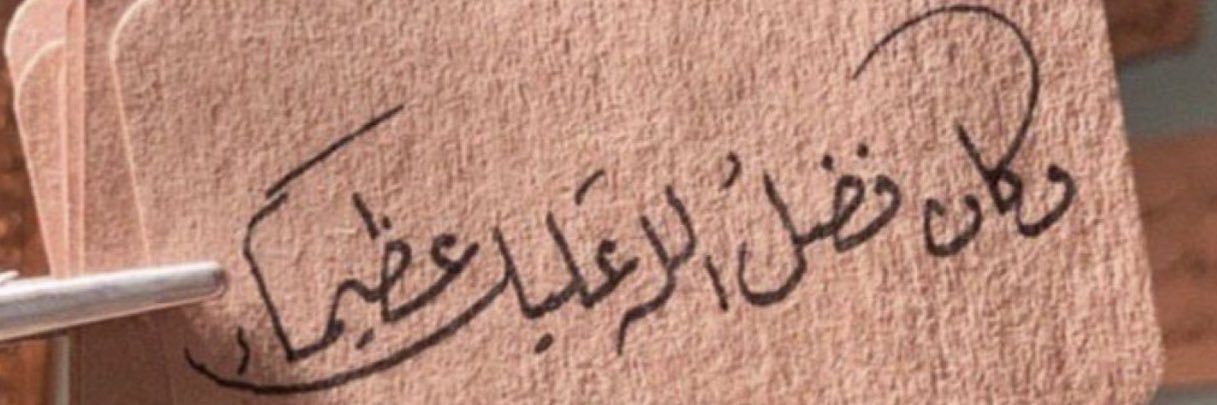 وكان فضلُ الله عليك عظيما